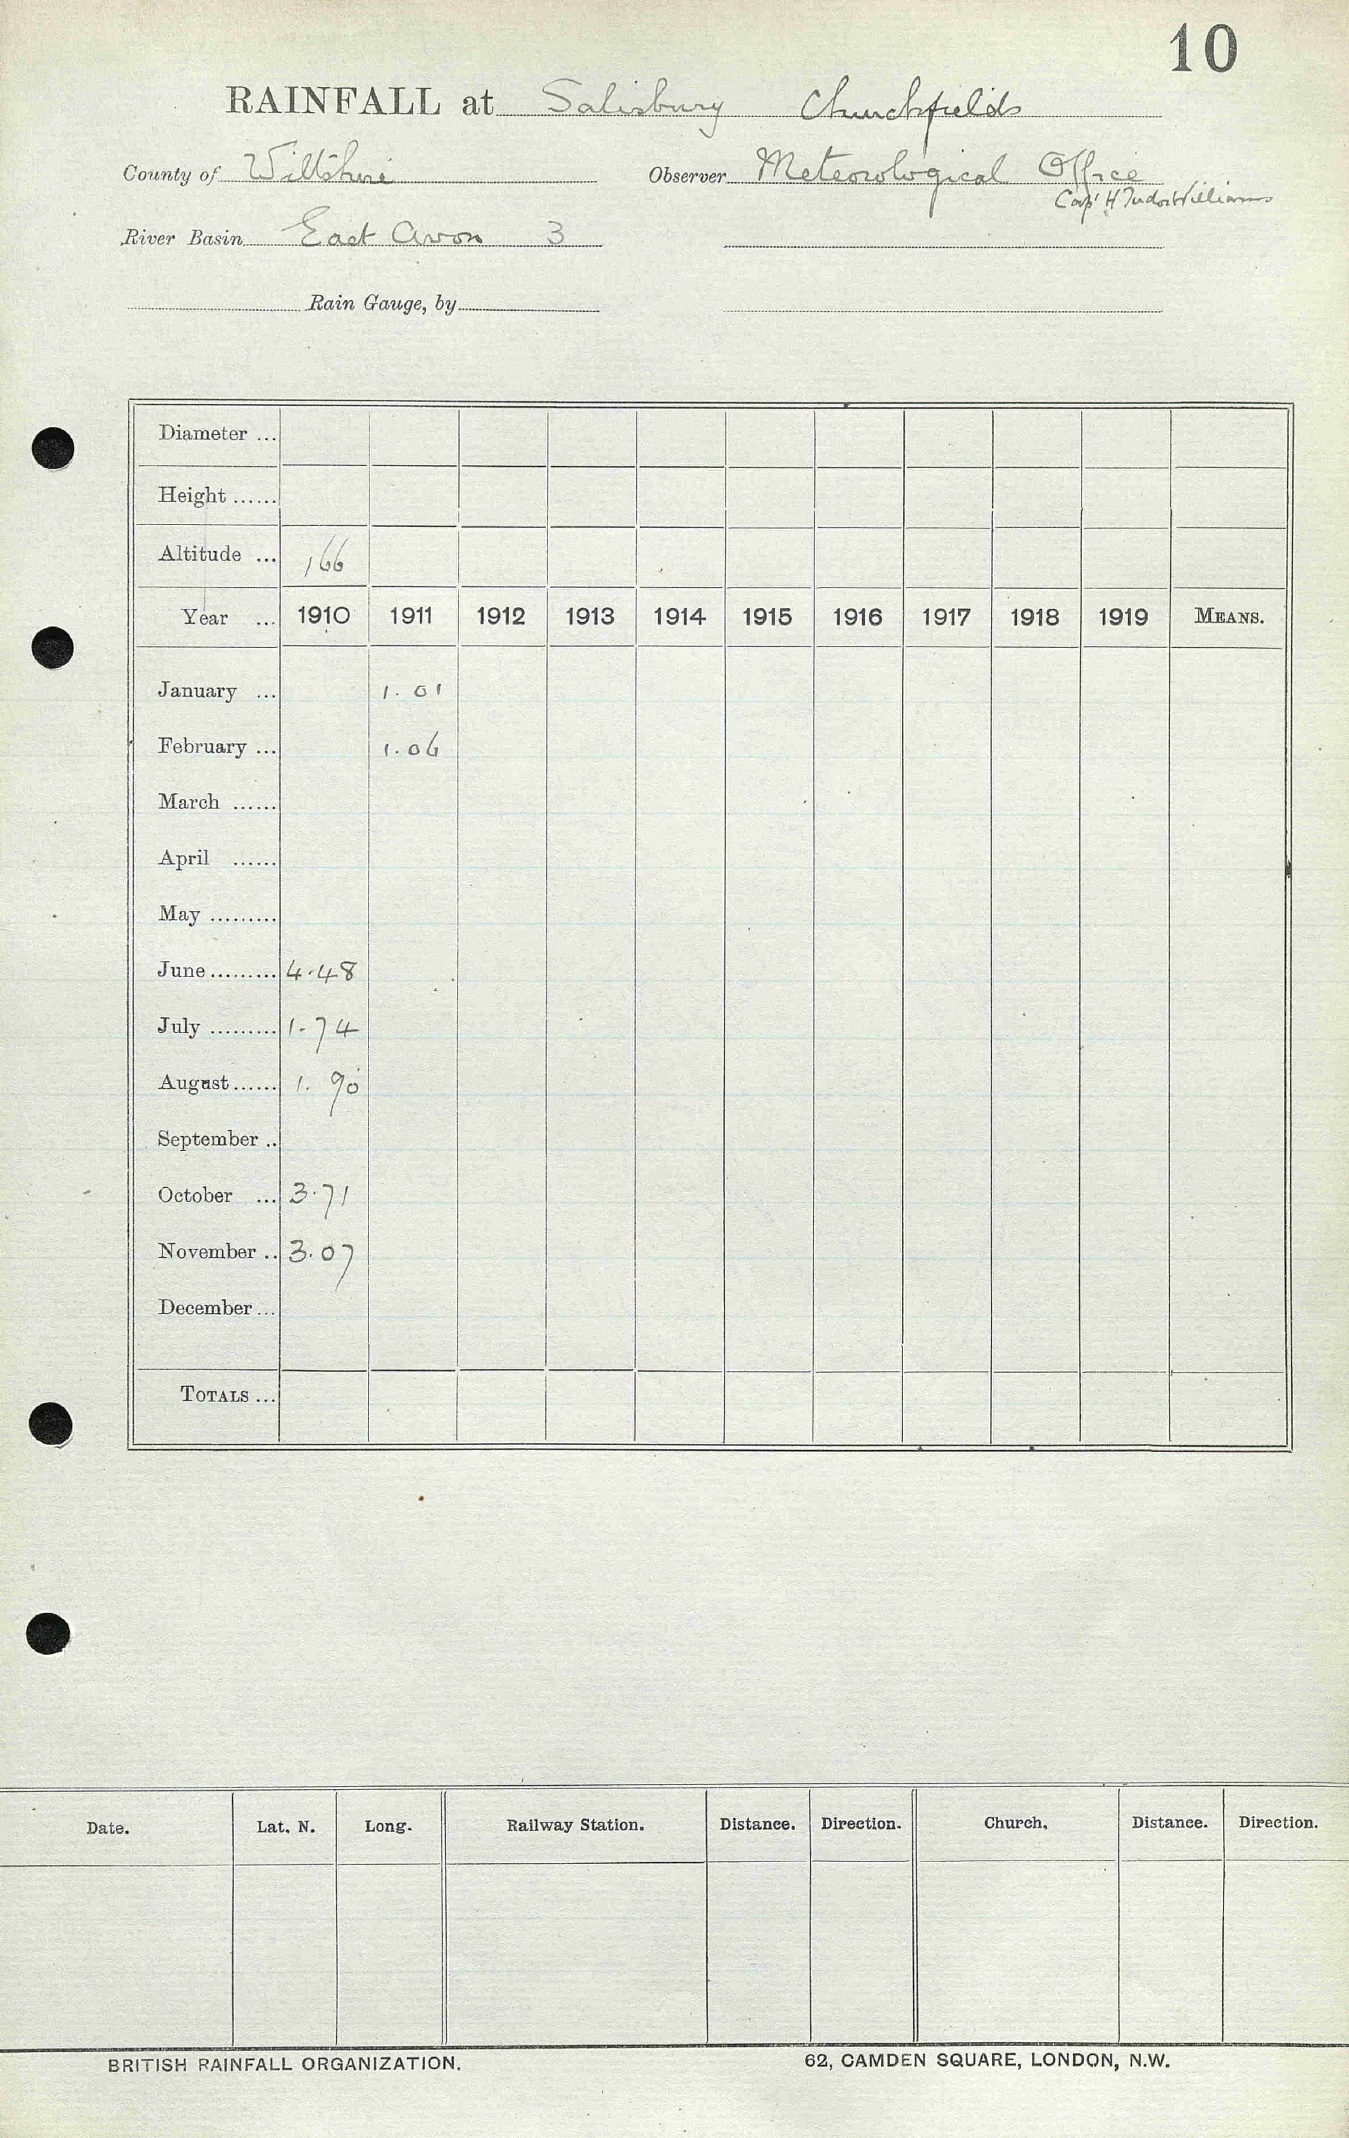 10
RAINFALL at Salisbury Churchfields
County of Wiltshire Observer Meteorological Office
Capt H Tudor Williams
River Basin East Avon 3
Rain Gauge, by
Diameter ...
Height ......
Altitude ... 166
Year ... 1910 1911 1912 1913 1914 1915 1916 1917 1918 1919 MEANS.
January ... 1.01
February ... 1.06
March ......
April ......
May .........
June ......... 4.48
July ......... 1.74
August ...... 1.90
September ..
October ... 3.71
November .. 3.07
December ...
TOTALS ...
Date. Lat. N. Long. Railway Station. Distance. Direction. Church. Distance. Direction.
BRITISH RAINFALL ORGANIZATION. 62, CAMDEN SQUARE, LONDON, N.W.